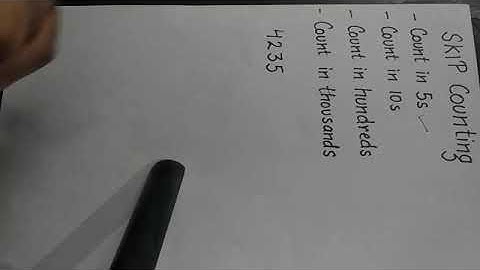 SKIP Counting
- Count in 5s ✓
- Count in 10s
- Count in hundreds
- Count in thousands
4235